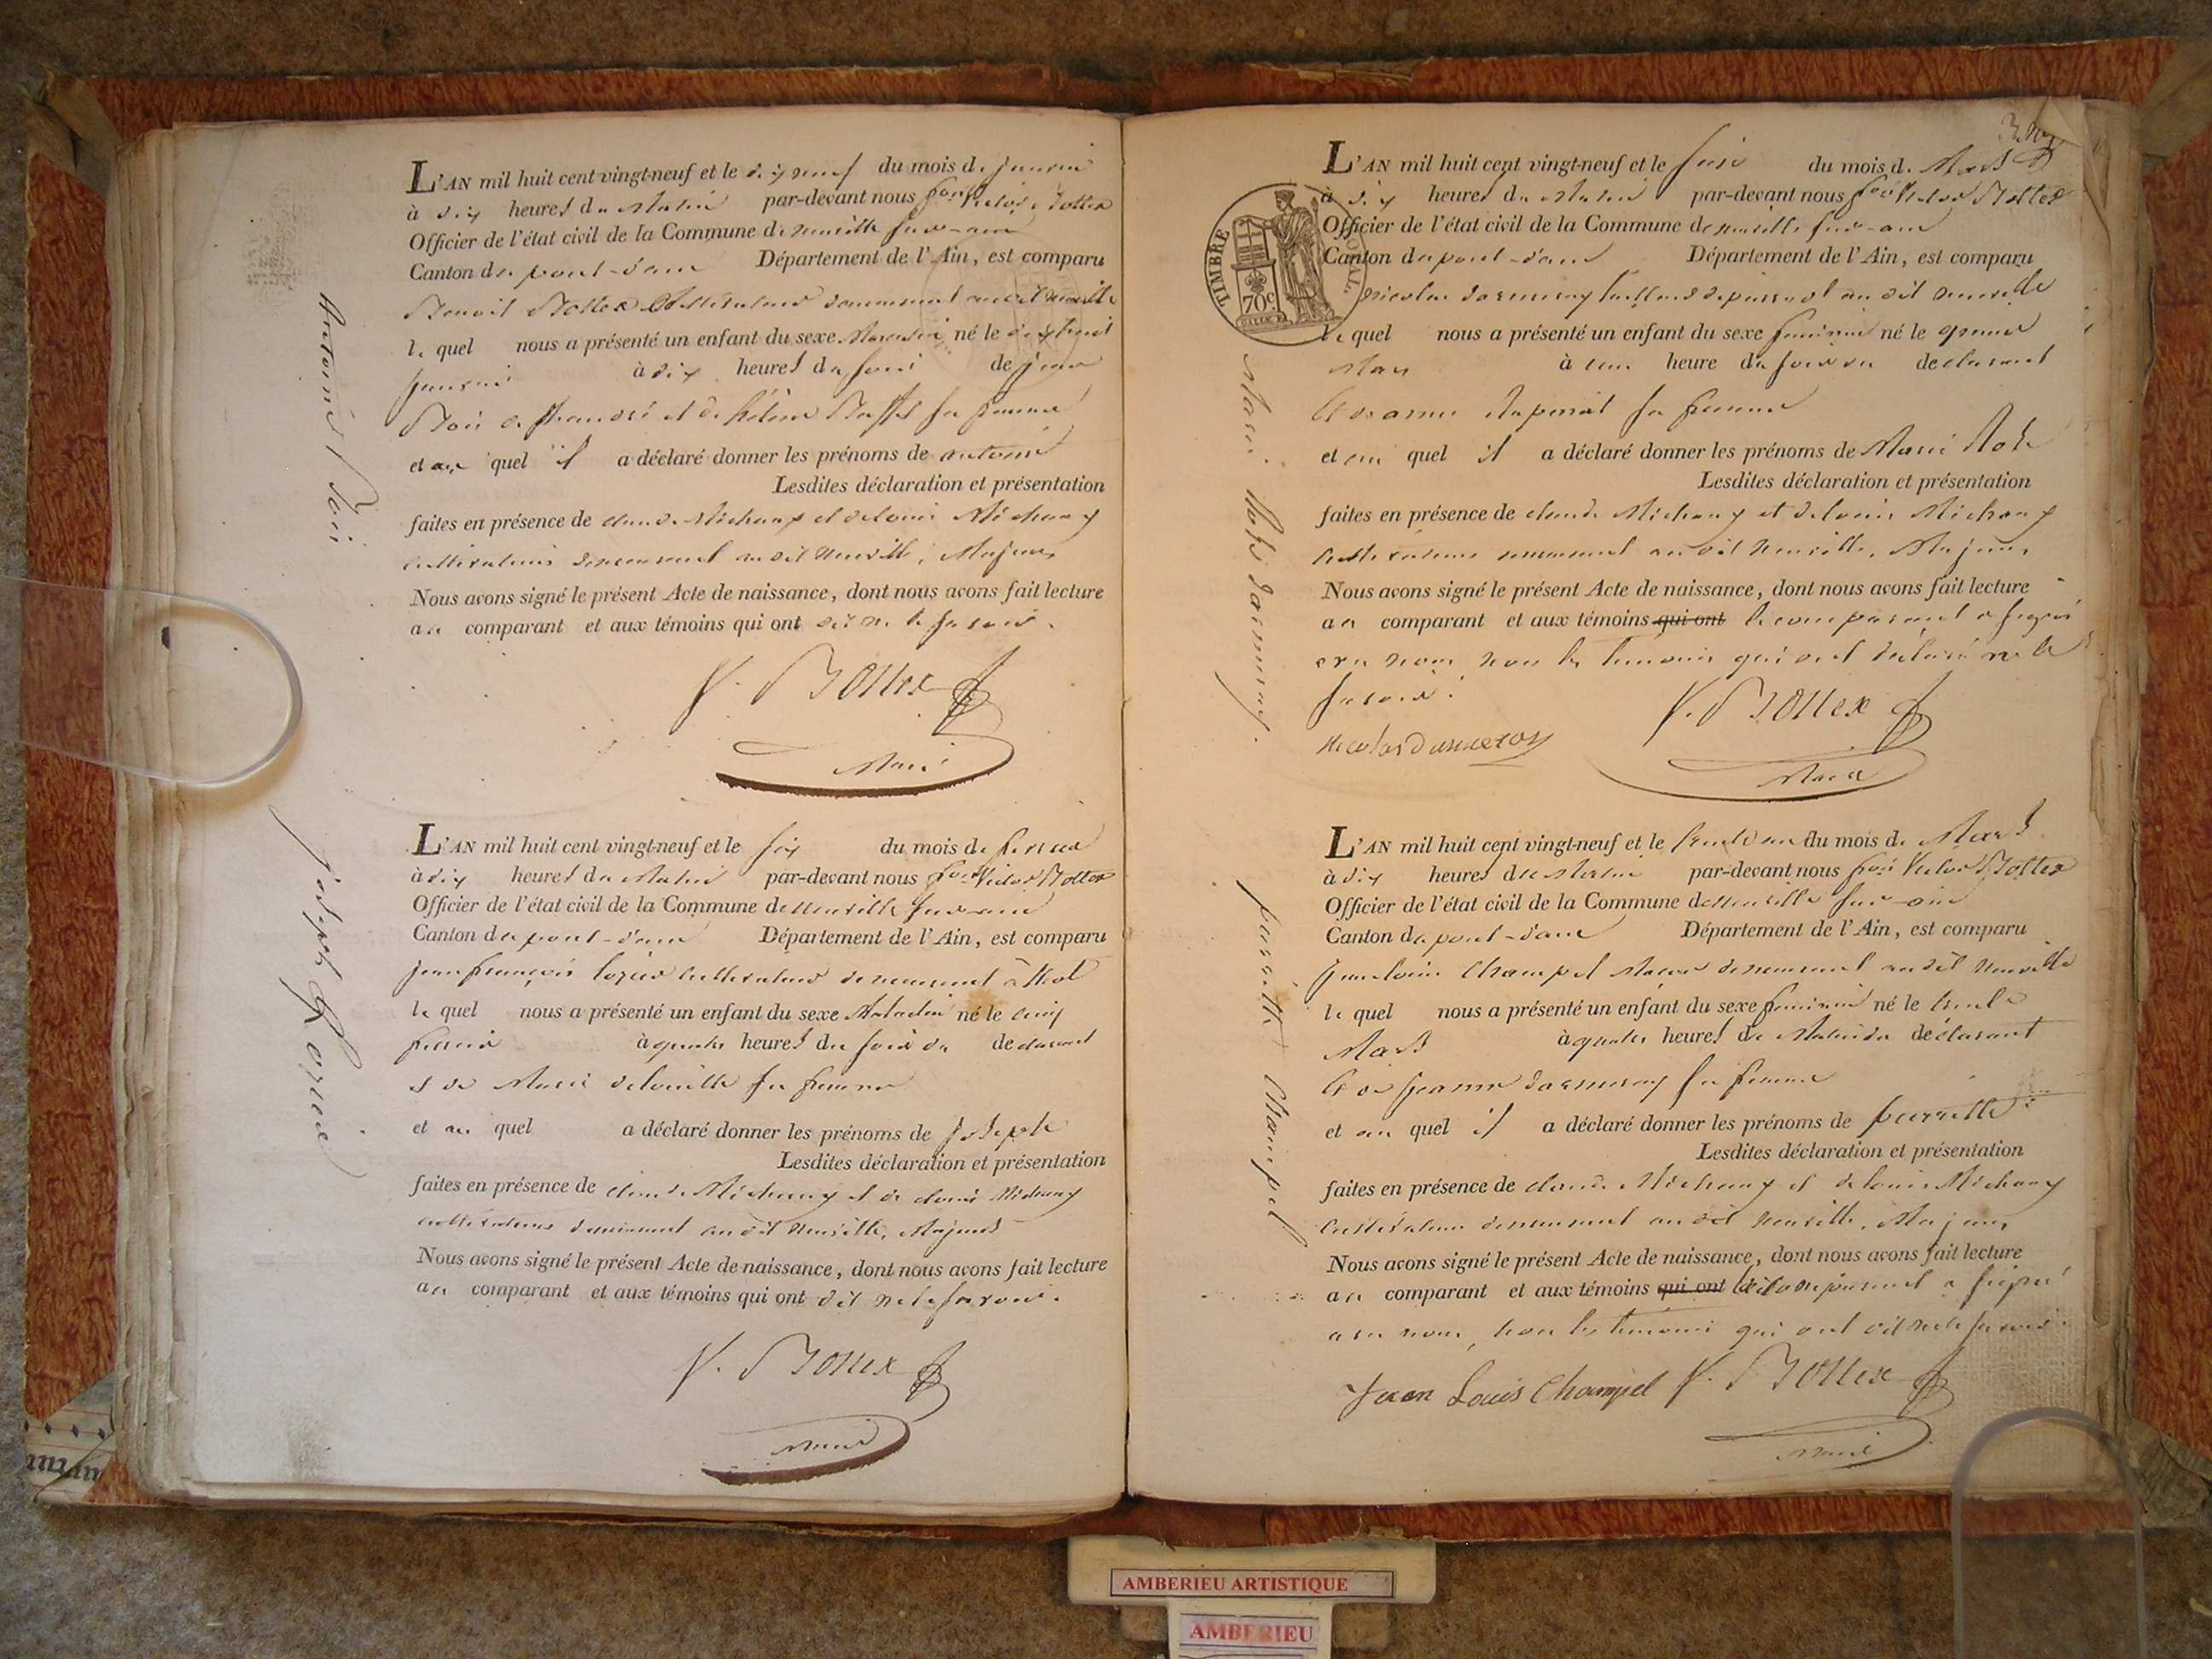 L'AN mil huit cent vingt-neuf et le dix neuf du mois de janvier
à dix heures du Matin par-devant nous fois Victor Bottex
Officier de l'état civil de la Commune de neuville sur-ain
Canton de pont-d'ain Département de l'Ain, est comparu
Benoit Bottex Cultivateur demeurant au dit neuville
le quel nous a présenté un enfant du sexe Masculin né le dix huit
janvier à dix heures du soir de
et de hélène sa femme
et au quel il a déclaré donner les prénoms de antoine
Lesdites déclaration et présentation
faites en présence de claude Michaux et de louis Michaux
cultivateurs demeurant au dit neuville, Majeurs
Nous avons signé le présent Acte de naissance, dont nous avons fait lecture
au comparant et aux témoins qui ont dit ne le savoir.
V. Bottex
Maire
Antoine
L'AN mil huit cent vingt-neuf et le six du mois de fevrier
à dix heures du Matin par-devant nous fois Victor Bottex
Officier de l'état civil de la Commune de neuville sur-ain
Canton de pont-d'ain Département de l'Ain, est comparu
jean françois cultivateur demeurant à
le quel nous a présenté un enfant du sexe Masculin né le cinq
fevrier à quatre heures du soir du declarant
et de Marie sa femme
et au quel a déclaré donner les prénoms de joseph
Lesdites déclaration et présentation
faites en présence de claude Michaux et de louis Michaux
cultivateurs demeurant au dit neuville, Majeurs
Nous avons signé le présent Acte de naissance, dont nous avons fait lecture
au comparant et aux témoins qui ont dit ne le savoir.
V. Bottex
Maire
joseph
TIMBRE ROYAL.
70c
L'AN mil huit cent vingt-neuf et le seize du mois de Mars
à dix heures du Matin par-devant nous fois Victor Bottex
Officier de l'état civil de la Commune de neuville sur-ain
Canton de pont-d'ain Département de l'Ain, est comparu
nicolas au dit neuville
le quel nous a présenté un enfant du sexe feminin né le quinze
Mars à une heure du soir du declarant
et sa femme
et au quel il a déclaré donner les prénoms de Marie Rose
Lesdites déclaration et présentation
faites en présence de claude Michaux et de louis Michaux
cultivateurs demeurant au dit neuville, Majeurs
Nous avons signé le présent Acte de naissance, dont nous avons fait lecture
au comparant et aux témoins qui ont le comparant a signé
avec nous non les temoins qui ont déclaré ne le
savoir.
V. Bottex
Maire
L'AN mil huit cent vingt-neuf et le trente un du mois de Mars
à dix heures du Matin par-devant nous fois Victor Bottex
Officier de l'état civil de la Commune de neuville sur-ain
Canton de pont-d'ain Département de l'Ain, est comparu
jean louis Champel Maçon demeurant au dit neuville
le quel nous a présenté un enfant du sexe feminin né le trente
Mars à quatre heures du Matin du déclarant
et de jeanne sa femme
et au quel il a déclaré donner les prénoms de pierrette
Lesdites déclaration et présentation
faites en présence de claude Michaux et de louis Michaux
cultivateurs demeurant au dit neuville, Majeurs
Nous avons signé le présent Acte de naissance, dont nous avons fait lecture
au comparant et aux témoins qui ont le comparant a signé
avec nous, non les temoins qui ont dit ne le savoir.
Jean Louis Champel V. Bottex
Maire
pierrette Champel
AMBERIEU ARTISTIQUE
AMBERIEU